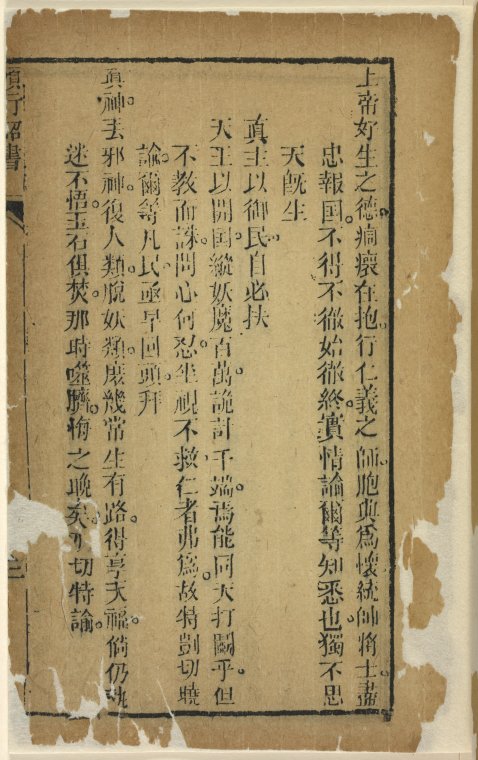 上帝好生之德痌瘝在抱行仁義之師胞與爲懷統帥將士盡
忠報国不得不徹始徹終實情諭爾等知悉也獨不思
天旣生
真主以御民自必扶
天王以開国縱妖魔百萬詭計千端焉能同天打鬭乎但
不教而誅問心何忍坐視不救仁者弗爲故特剴切曉
諭爾等凡民亟早回頭拜
真神丟邪神復人類脫妖類庶幾常生有路得享天福倘仍執
迷不悟玉石俱焚那時噬臍悔之晚矣切切特諭
頒行詔書